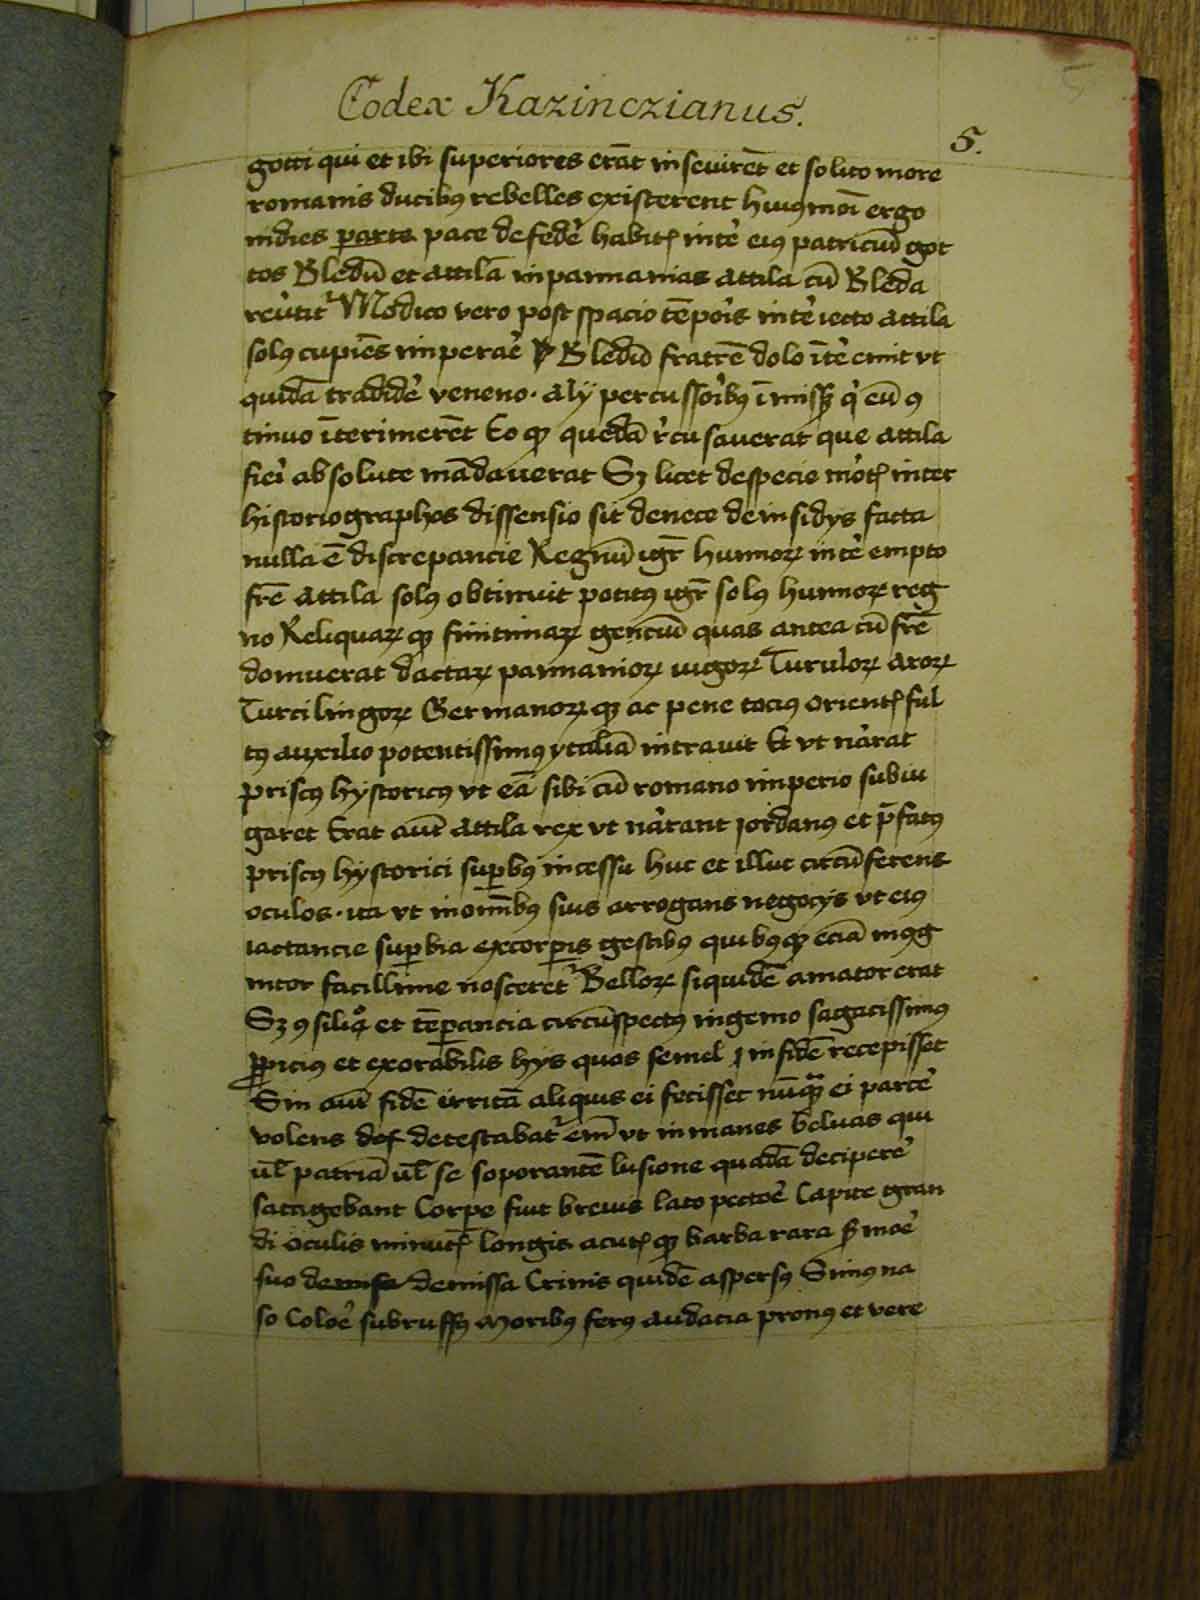 Codex Kazinczianus.
5
5.
gotti qui et ibi superiores erāt insevirēt et solito more
romanis ducibꝰ rebelles existerent huiꝰmoi ergo
indies parte pace de federe habitꝭ inte eiꝰ patriciū got
tos Bledū et attilā in pannanias attila cū Bleda
revtit Modico vero post spacio tēpois inte iecto attila
solꝰ cupiēs imperare Bledū fratrē dolo īte emit vt
quidā tradide veneno. alÿ percussoibꝰ īmissꝭ q eū ꝯ
tinuo īterimerēt Eo qꝫ quedā rcusaverat que attila
fiei absolute mādaverat Sꝫ licet de specie motꝭ inter
historiographos dissensio sit de nece de insidÿs facta
nulla ē discrepancie Regnū igr̄ hunnoꝝ inte empto
frē attila solꝰ obtinuit potitꝰ igr̄ solꝰ hunnoꝝ reg
no Reliquaꝝ qꝫ finitimaꝝ gentiū quas antea cū frē
domuerat dactaꝝ pannanioꝝ uigoꝝ Turuloꝝ aroꝝ
Turcilingoꝝ Germanoꝝ qꝫ ac pene tociꝰ orientꝭ ful
tꝰ auxilio potentissimꝰ ytaliā intravit Et vt narat
priscꝰ hystoricꝰ vt eā sibi cū romano imperio subiu
garet Erat aut attila rex vt narant jordanꝰ et p̄fatꝰ
priscꝰ hystorici suꝑbꝰ incessu huc et illuc circūferens
oculos. ita vt in omībꝰ suis arrogans negocÿs vt eiꝰ
iactancie suꝑbia ex corꝑis gestibꝰ quibꝰqꝫ eciā inꝯg
nitor facillime nosceret Belloꝝ siquidē amator erat
Sꝫ ꝯsilioqꝫ et tēꝑancia circūspectꝰ ingenio sagacissimꝰ
ꝓpicius et exorabilis hÿs quos semel in fidē recepisset
Sin aut fidē irritā aliquis ei fecisset nūqꝫ ei parce
volens def detestabat em̄ vt inmanes beluas qui
ul̄ patriā ul̄ se soporantē lusione quadā decipere
satagebant Corpe fuit brevis lato pectoe Capite gran
di oculis minutꝭ longis acutꝭ qꝫ barba rara ꝑ moe
suo demisa demissa Crinis quidē aspersꝰ Simꝰ na
so Coloe subruffꝰ moribꝰ ferꝰ audacia pronꝰ et vere